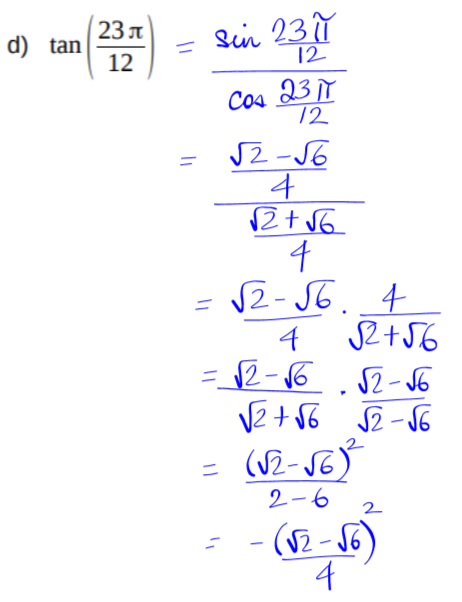 d) tan(23π/12) = (sin 23π/12)/(cos 23π/12)
= ((√2 - √6)/4)/((√2 + √6)/4)
= (√2 - √6)/4 · 4/(√2 + √6)
= (√2 - √6)/(√2 + √6) · (√2 - √6)/(√2 - √6)
= (√2 - √6)²/(2 - 6)
= -(√2 - √6)²/4